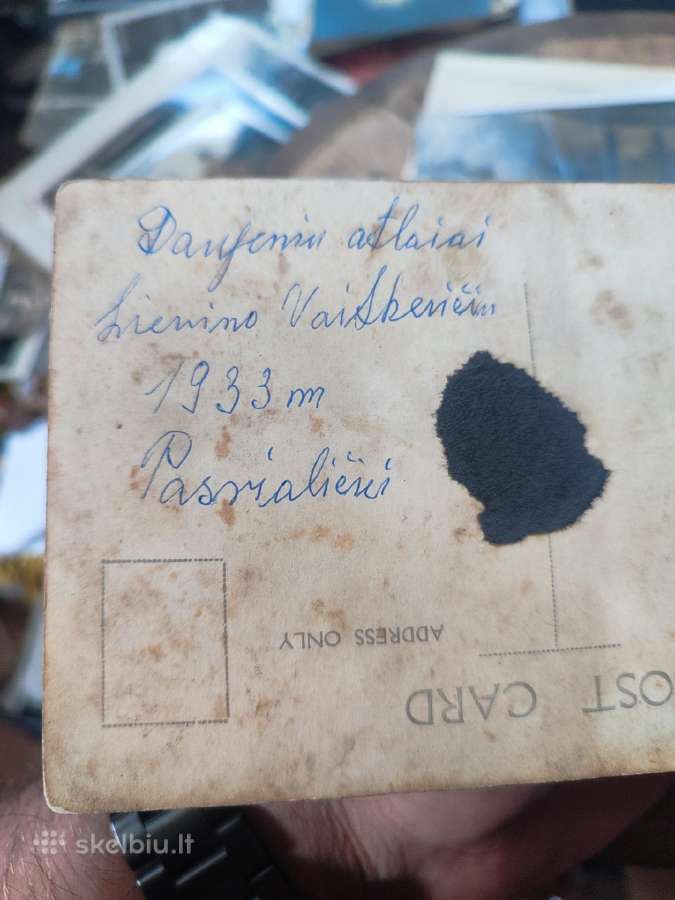 Daujėnių atlaiai
Lienino Vaitkevičiu
1933 m
Pasvaliečiei
ADDRESS ONLY
OST CARD
skelbiu.lt